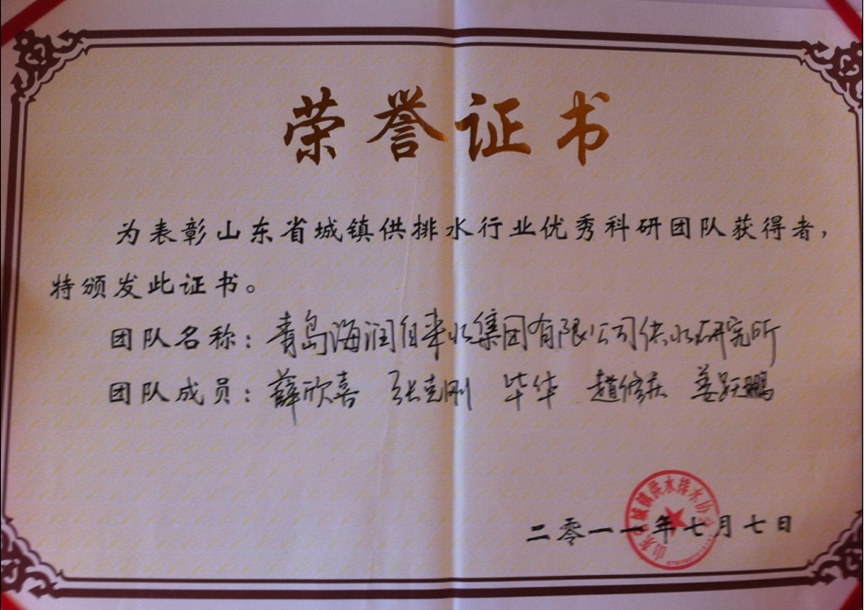 荣誉证书
为表彰山东省城镇供排水行业优秀科研团队获得者，
特颁发此证书。
团队名称：青岛海润自来水集团有限公司供水研究所
团队成员：薛欣喜 张克刚 毕华 赵修 姜跃鹏
山东省城镇供水排水协会
二零一一年七月七日